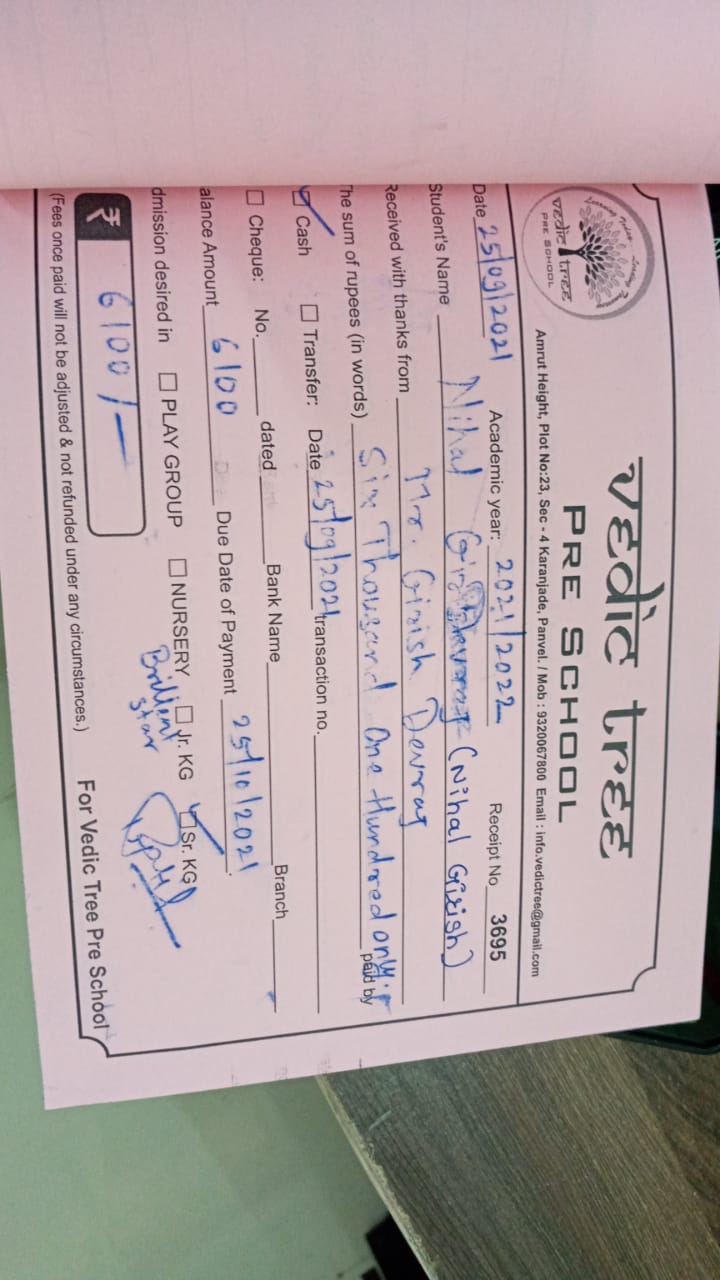 vedic tree
PRE SCHOOL
Learning
vedic tree
PRE SCHOOL
Amrut Height, Plot No:23, Sec - 4 Karanjade, Panvel. / Mob : 9320067800 Email : info.vedictree@gmail.com
Date 25/09/2021 Academic year: 2021/2022 Receipt No 3695
Student's Name Nihal (Nihal Girish)
Received with thanks from Mr. Girish Devraj
The sum of rupees (in words) Six Thousand One Hundred only paid by
Cash Transfer: Date 25/09/2021 transaction no.
Cheque: No. dated Bank Name Branch
alance Amount 6100 Due Date of Payment 25/10/2021
dmission desired in PLAY GROUP NURSERY Jr. KG Sr. KG
Brillient
star
₹ 6100/-
For Vedic Tree Pre School
(Fees once paid will not be adjusted & not refunded under any circumstances.)